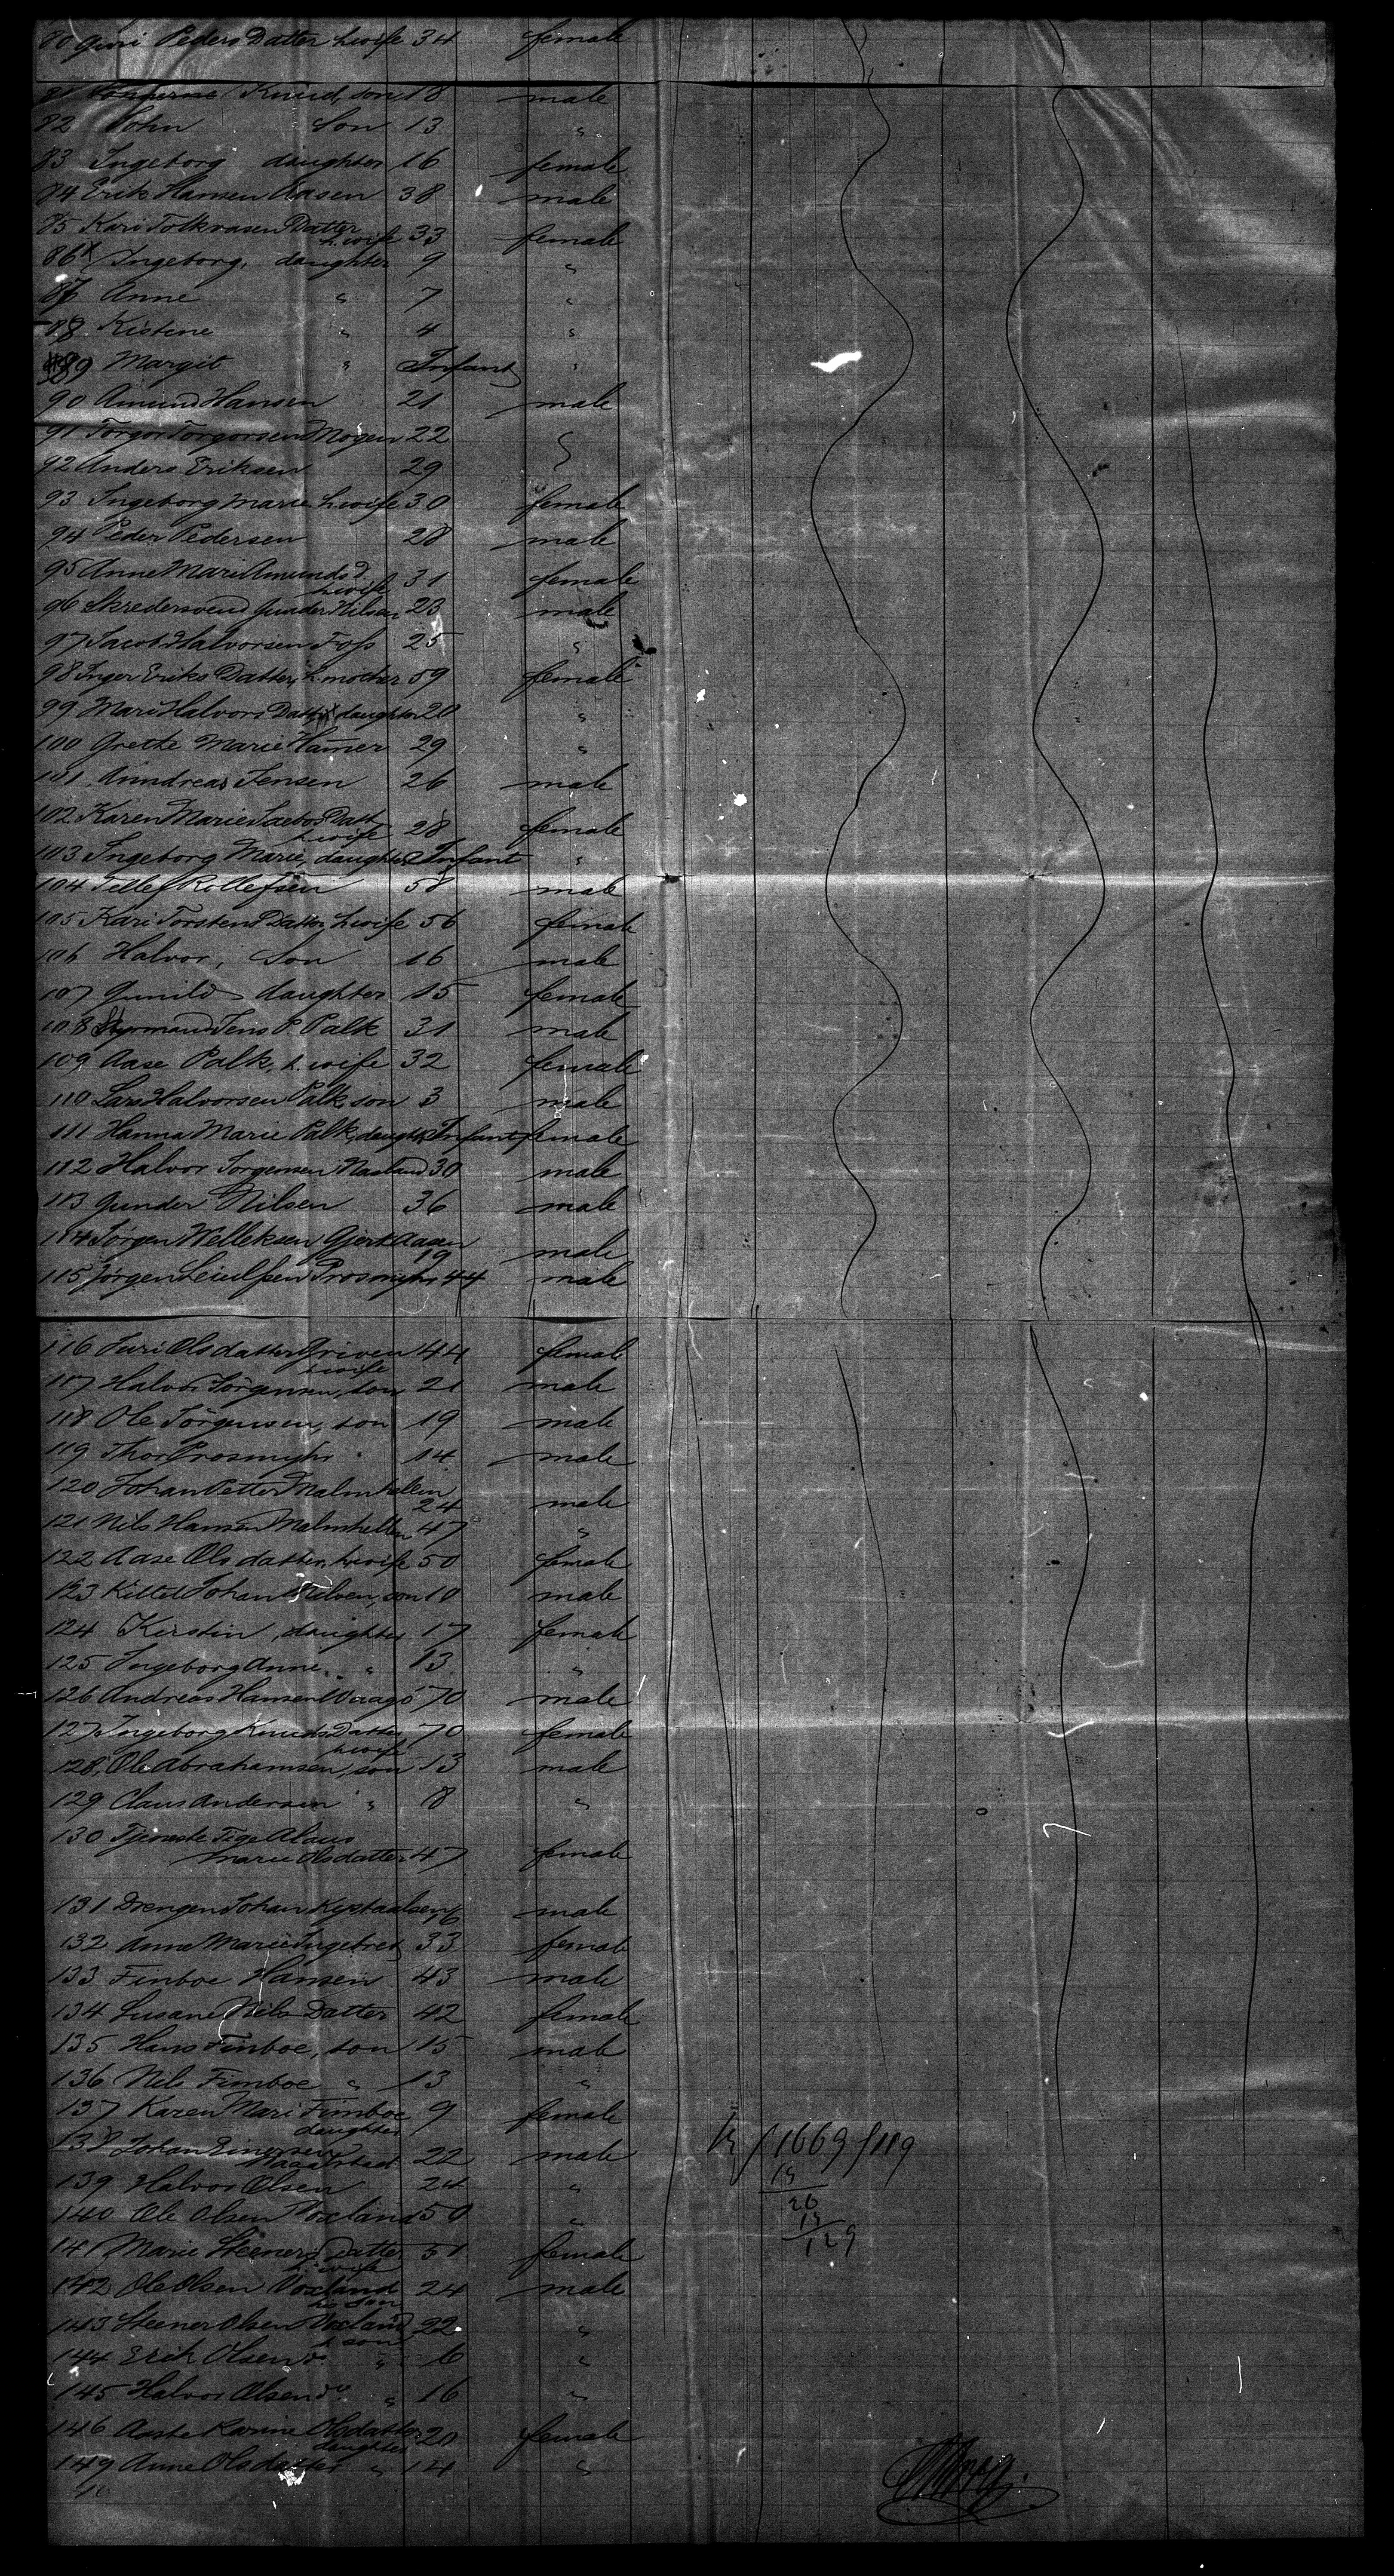 80 Guri Peders Datter h wife 34 female
81 Knud, son 18 male
82 John Son 13 "
83 Ingeborg daughter 16 female
84 Erik Hansen Aasen 38 male
85 Kari Tolkrasen Datter
h. wife 33 female
86 Ingeborg, daughter 9 "
87 Anne " 7 "
88 Kistene " 4 "
89 Margit " Infant "
90 Amund Hansen 21 male
91 Torgor Torgorsen Mogen 22
92 Anders Eriksen 29
93 Ingeborg Marie h wife 30 female
94 Peder Pedersen 28 male
95 Anne Mari Amunds d.
h wife 31 female
96 Gunder Nilsen 23 male
97 Jacob Halvorsen Foss 25 "
98 Inger Eriks Datter, h. mother 59 female
99 Mari Halvors Datter daughter 20 "
100 Grethe Marie Hamer 29 "
101 Anndreas Jensen 26 male
102 Karen Marie Datt
h wife 28 female
103 Ingeborg Marie, daughter Infant "
104 Tellef Rollefsen 58 male
105 Kari Torstens Datter h wife 56 female
106 Halvor, Son 16 male
107 Gunild daughter 15 female
108 Styrmand Jens P. Palk 31 male
109 Aase Palk, h. wife 32 female
110 Lars Halvorsen Palk, son 3 male
111 Hanna Marie Palk, daught. Infant female
112 Halvor Jorgensen Nasland 30 male
113 Gunder Nilsen 36 male
114 Jörgen Welleksen Gjerk Aasen
19 male
115 Jörgen Leiulfsen Prosmyhr 44 male
116 Juri Olsdatter Griven 44 female
h wife
117 Halvor Jörgensen, son 21 male
118 Ole Jörgensen, son 19 male
119 Thor Prosmyhr " 14 male
120 Johan Petter Malmhellen
24 male
121 Nils Hansen Malmhellen 47 "
122 Aase Olsdatter, h wife 50 female
123 Kittel Johan son 10 male
124 Kerstin, daughter 17 female
125 Ingeborg Anne, " 13 "
126 Andreas Hansen Waagö 70 male
127 Ingeborg Knuds Datter 70 female
h wife
128 Ole Abrahamsen, son 13 male
129 Claus Andersen " 8 "
130 Tjeneste Pige
Marie Olsdatter 47 female
131 Drengen Johan 16 male
132 Anne Marie Ingebret 33 female
133 Finboe Hansen 43 male
134 Susane Nils Datter 42 female
135 Hans Finboe, son 15 male
136 Nils Finboe " 13 "
137 Karen Mari Finboe 9 female
daughter
138 Johan Einersen
22 male
139 Halvor Olsen 24 "
140 Ole Olsen Voxland 50 "
141 Marie Steeners Datter 51 female
h. wife
142 Ole Olsen Voxland 24 male
his son
143 Steener Olsen Voxland 22 "
h son
144 Erik Olsen do " 6 "
145 Halvor Olsen do " 16 "
146 Aaste Karine Olsdatter 20 female
daughter
149 Anne Olsdatter " 14 "